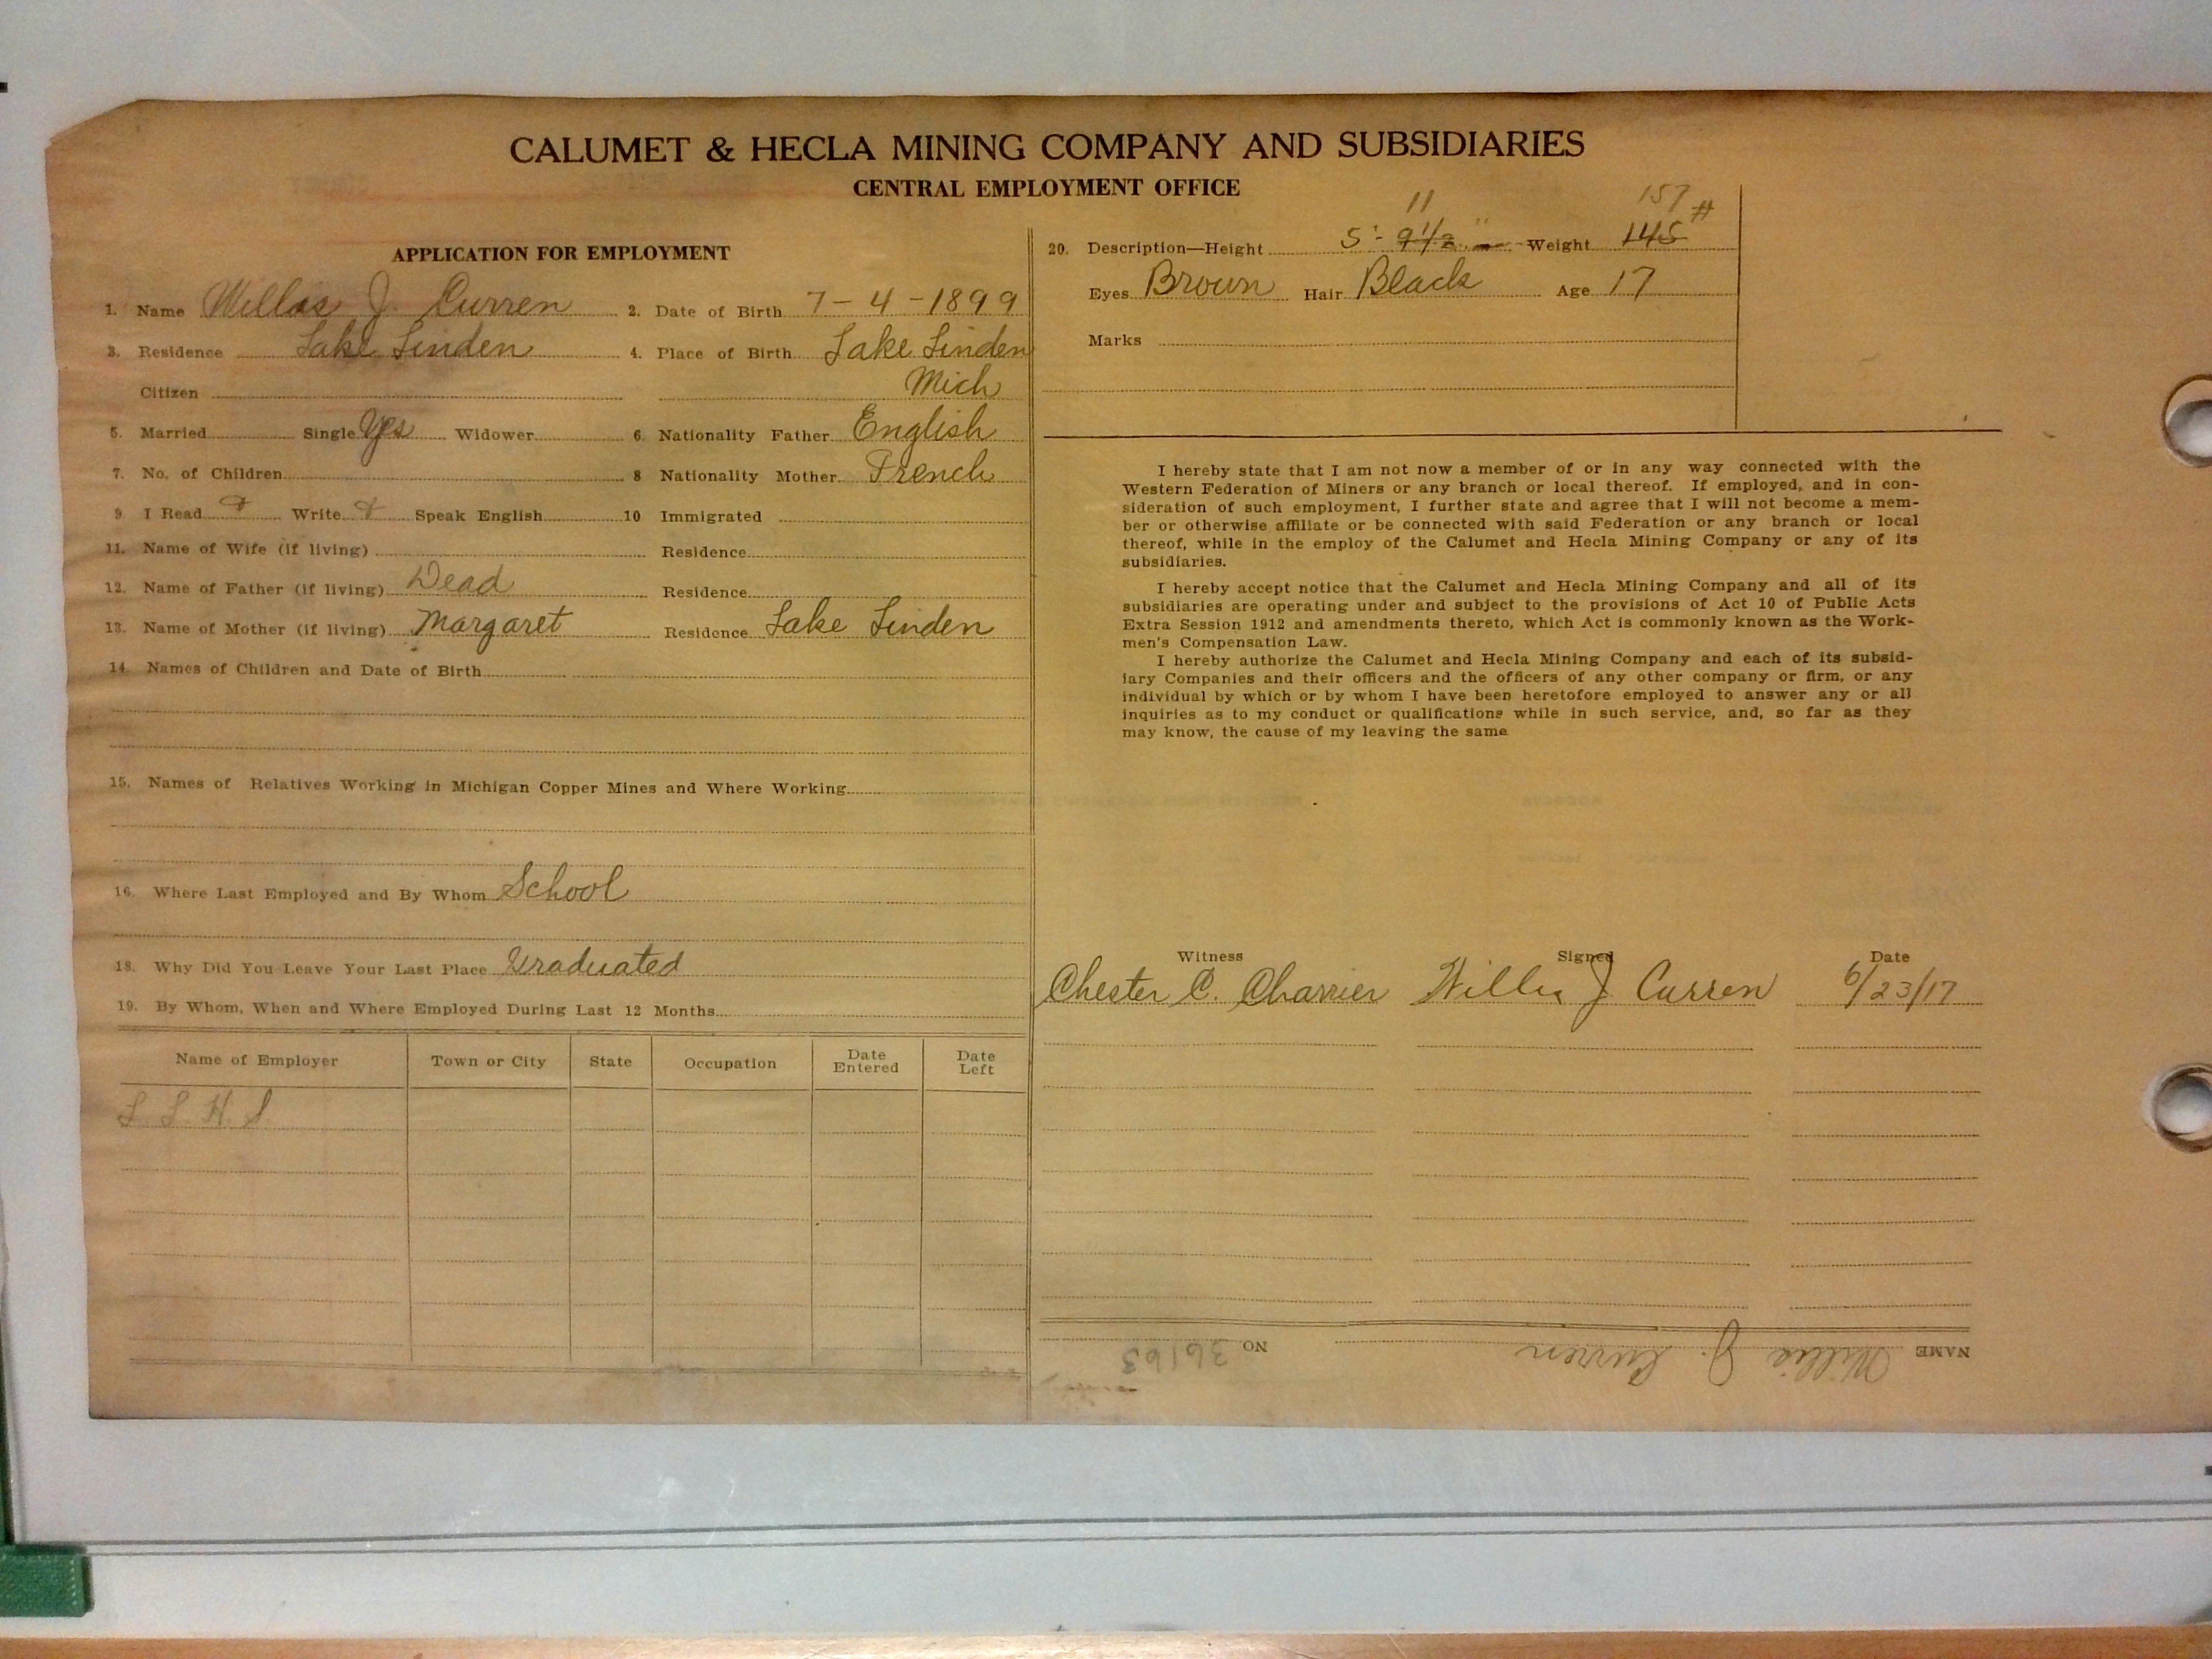 CALUMET & HECLA MINING COMPANY AND SUBSIDIARIES
CENTRAL EMPLOYMENT OFFICE
APPLICATION FOR EMPLOYMENT
1. Name Willas J. Curren 2. Date of Birth 7-4-1899
3. Residence Lake Linden 4. Place of Birth Lake Linden
Citizen Mich
5. Married Single Yes Widower 6. Nationality Father English
7. No. of Children 8 Nationality Mother French
9 I Read Write Speak English 10 Immigrated
11. Name of Wife (if living) Residence
12. Name of Father (if living) Dead Residence
13. Name of Mother (if living) Margaret Residence Lake Linden
14. Names of Children and Date of Birth
15. Names of Relatives Working in Michigan Copper Mines and Where Working
16. Where Last Employed and By Whom School
18. Why Did You Leave Your Last Place Graduated
19. By Whom, When and Where Employed During Last 12 Months
Name of Employer Town or City State Occupation Date Entered Date Left
L. L. H. S.
11 157 #
20. Description—Height 5' - 9 1/2 " Weight 145
Eyes Brown Hair Black Age 17
Marks
I hereby state that I am not now a member of or in any way connected with the
Western Federation of Miners or any branch or local thereof. If employed, and in con-
sideration of such employment, I further state and agree that I will not become a mem-
ber or otherwise affiliate or be connected with said Federation or any branch or local
thereof, while in the employ of the Calumet and Hecla Mining Company or any of its
subsidiaries.
I hereby accept notice that the Calumet and Hecla Mining Company and all of its
subsidiaries are operating under and subject to the provisions of Act 10 of Public Acts
Extra Session 1912 and amendments thereto, which Act is commonly known as the Work-
men's Compensation Law.
I hereby authorize the Calumet and Hecla Mining Company and each of its subsid-
iary Companies and their officers and the officers of any other company or firm, or any
individual by which or by whom I have been heretofore employed to answer any or all
inquiries as to my conduct or qualifications while in such service, and, so far as they
may know, the cause of my leaving the same
Witness Signed Date
Chester C. Charrier Willis J Curren 6/23/17
NAME Willis J. Curren NO 36163